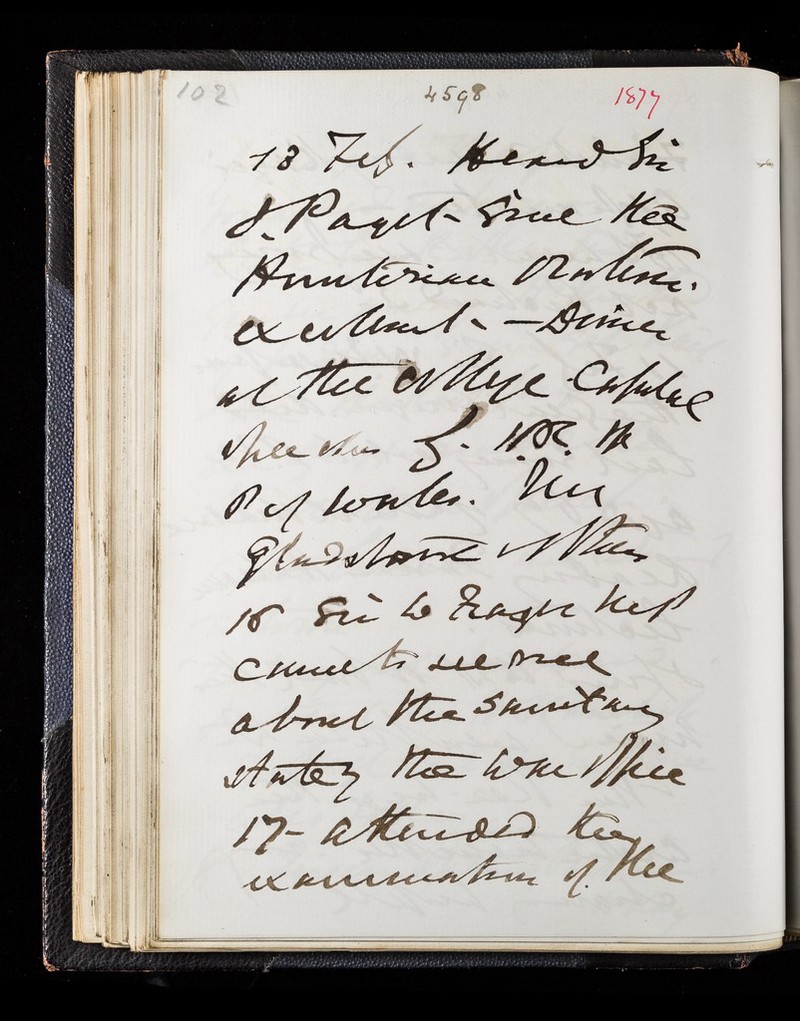 102 4598 1877
13 Feb. Heard Sir
J. Paget give the
Hunterian Oration.
excellent - — Dinner
at the College Capital
speeches by. H.R.H
P of Wales. Mr
Gladstone & others
16 Sir W
came to see me
about the Sanitary
state of the War Office
17 - attended the
examination of the